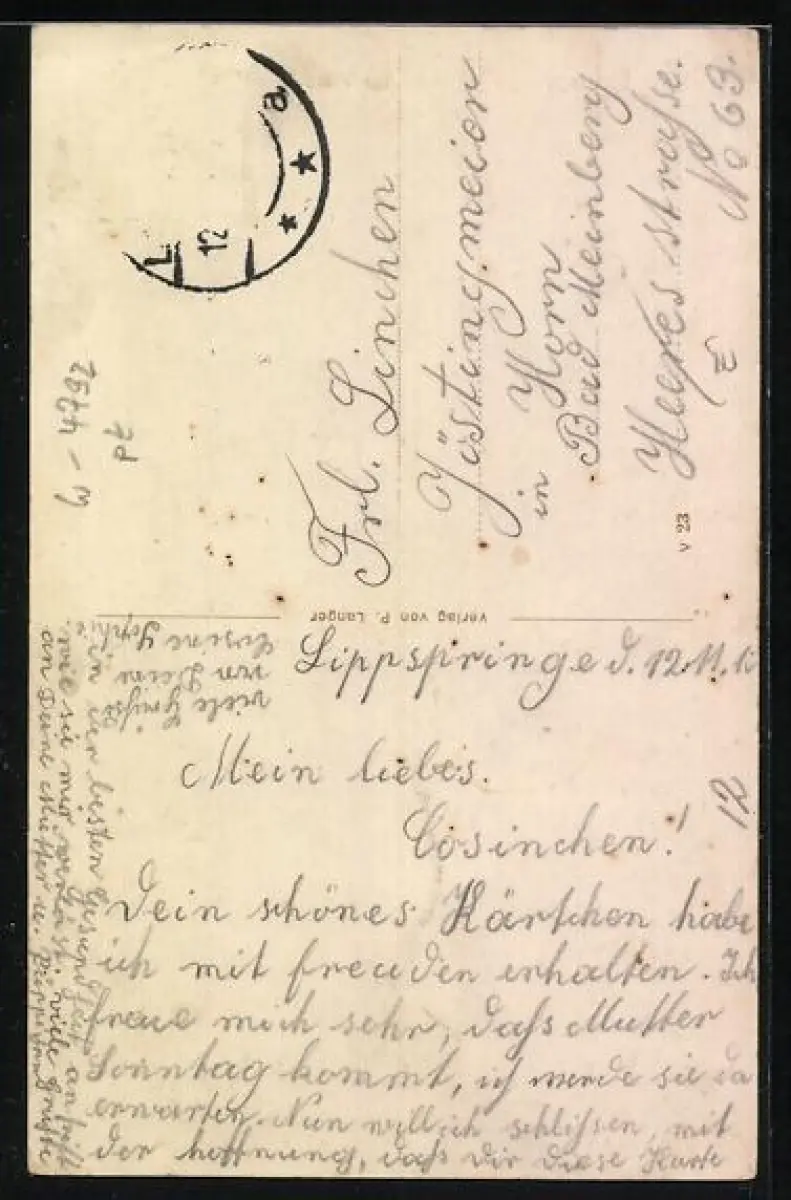 L
12
a
W - 4792
pt
Frl. Linchen
Jöstingmeier
in Horn
Bad Meinberg
Heeres strasse.
No 63.
v 23
Verlag von P. Langer
Lippspringe d. 12.11.
12
Mein liebes.
Cosinchen!
Dein schönes Kärtchen habe
ich mit freuden erhalten. Ich
freue mich sehr, daß Mutter
Sonntag kommt, ich werde sie da
erwarten. Nun will ich schlißen, mit
der hoffnung, daß dir diese Karte
in der besten Gesundheit antrifft
wie sie mir verläst. viele Grüße
an Deine Mutter u.
viele Grüße
von Deiner
Cusine Sophie